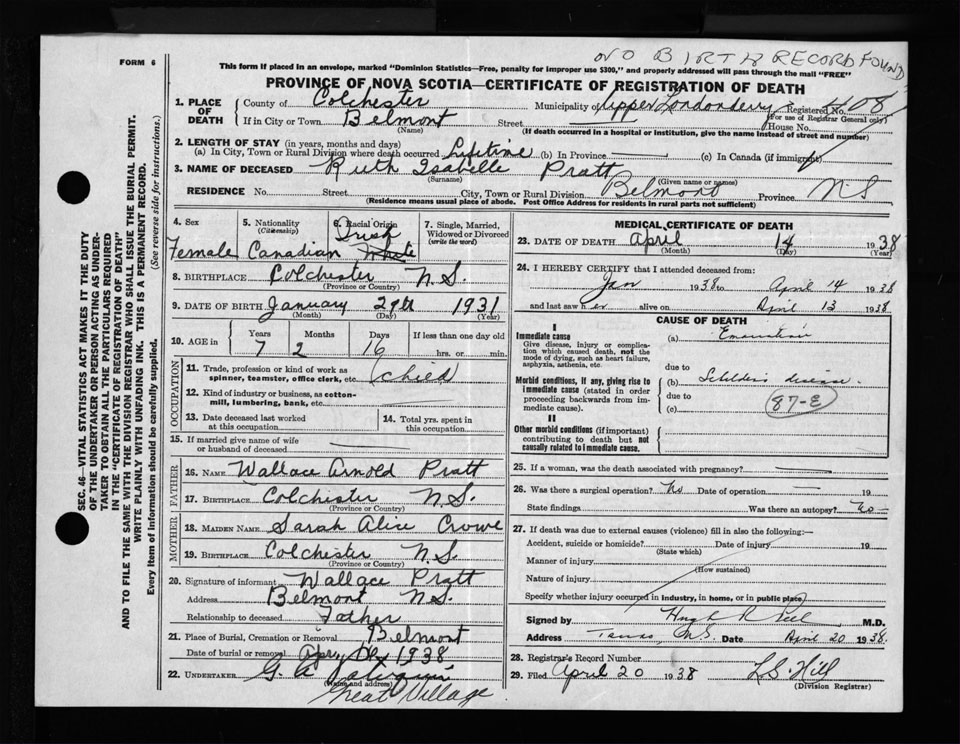 NO BIRTH RECORD FOUND
FORM 6
This form if placed in an envelope, marked "Dominion Statistics—Free, penalty for improper use $300," and properly addressed will pass through the mail "FREE"
PROVINCE OF NOVA SCOTIA—CERTIFICATE OF REGISTRATION OF DEATH
1. PLACE OF DEATH
County of Colchester Municipality of Upper Londonderry Registered No. 08
(For use of Registrar General only)
If in City or Town Belmont Street House No.
(Name) (If death occurred in a hospital or institution, give the name instead of street and number)
2. LENGTH OF STAY (in years, months and days)
(a) In City, Town or Rural Division where death occurred Lifetime (b) In Province — (c) In Canada (if immigrant)
3. NAME OF DECEASED Ruth Isabelle Pratt
(Surname) (Given name or names)
RESIDENCE No. Street City, Town or Rural Division Belmont Province N S
(Residence means usual place of abode. Post Office Address for residents in rural parts not sufficient)
4. Sex 5. Nationality (Citizenship) 6. Racial Origin 7. Single, Married, Widowed or Divorced (write the word)
Irish
Female Canadian White
8. BIRTHPLACE Colchester N.S.
(Province or Country)
9. DATE OF BIRTH January 29th 1931
(Month) (Day) (Year)
10. AGE in Years Months Days If less than one day old
7 2 16 hrs. or min.
OCCUPATION
11. Trade, profession or kind of work as spinner, teamster, office clerk, etc. Child
12. Kind of industry or business, as cotton-mill, lumbering, bank, etc.
13. Date deceased last worked at this occupation
14. Total yrs. spent in this occupation
15. If married give name of wife or husband of deceased
FATHER
16. NAME Wallace Arnold Pratt
17. BIRTHPLACE Colchester N.S.
(Province or Country)
MOTHER
18. MAIDEN NAME Sarah Alice Crowe
19. BIRTHPLACE Colchester N.S.
(Province or Country)
20. Signature of informant Wallace Pratt
Address Belmont N.S.
Relationship to deceased Father
21. Place of Burial, Cremation or Removal Belmont
Date of burial or removal Apr. 1938
22. UNDERTAKER G. A.
(Name and address)
Great Village
MEDICAL CERTIFICATE OF DEATH
23. DATE OF DEATH April 14 1938
(Month) (Day) (Year)
24. I HEREBY CERTIFY that I attended deceased from:
Jan 1938 to April 14 1938
and last saw her alive on April 13 1938
CAUSE OF DEATH
I
Immediate cause
Give disease, injury or complication which caused death, not the mode of dying, such as heart failure, asphyxia, asthenia, etc.
(a)
due to
Morbid conditions, if any, giving rise to immediate cause (stated in order proceeding backwards from immediate cause).
(b) Schilder's disease.
due to
(c) 87-E
II
Other morbid conditions (if important) contributing to death but not causally related to immediate cause.
25. If a woman, was the death associated with pregnancy?
26. Was there a surgical operation? No Date of operation — 19
State findings Was there an autopsy? No
27. If death was due to external causes (violence) fill in also the following:—
Accident, suicide or homicide? Date of injury 19
(State which)
Manner of injury
(How sustained)
Nature of injury
Specify whether injury occurred in industry, in home, or in public place
Signed by Hugh R Peel M.D.
Address N.S. Date April 20 1938.
28. Registrar's Record Number
29. Filed April 20 1938 L.S. Hill
(Division Registrar)
SEC. 46—VITAL STATISTICS ACT MAKES IT THE DUTY
OF THE UNDERTAKER OR PERSON ACTING AS UNDER-
TAKER TO OBTAIN ALL THE PARTICULARS REQUIRED
IN THE "CERTIFICATE OF REGISTRATION OF DEATH"
AND TO FILE THE SAME WITH THE DIVISION REGISTRAR WHO SHALL ISSUE THE BURIAL PERMIT.
WRITE PLAINLY WITH UNFADING INK. THIS IS A PERMANENT RECORD.
Every item of information should be carefully supplied. (See reverse side for instructions.)